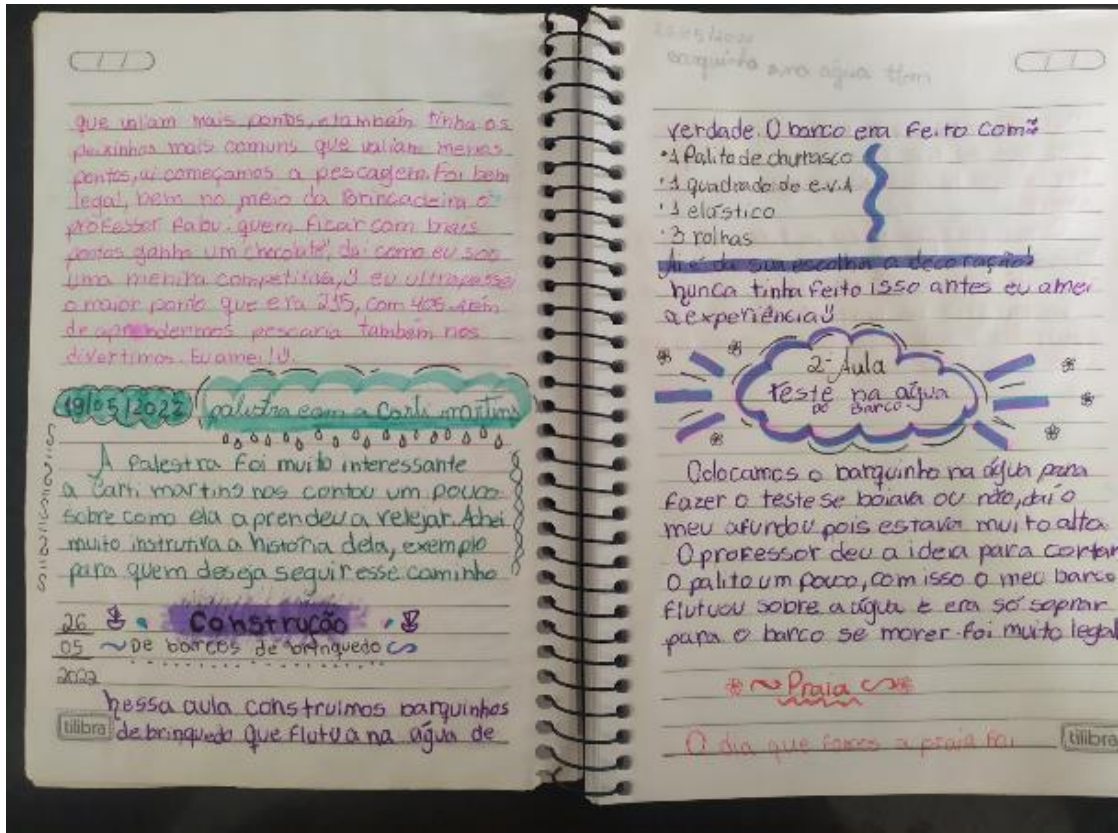 que valiam mais pontos, e também tinha os
peixinhos mais comuns que valiam menos
pontos, ai começamos a pescagem. Foi bem
legal, bem no meio da Brincadeira o
professor falou: quem ficar com mais
pontos ganha um chocolate, dai como eu sou
uma menina competitiva, eu ultrapassei
o maior ponto que era 295, com 405. Além
de aprendermos pescaria também nos
divertimos. Eu amei!
19/05/2022
palestra com a Carli martins
A Palestra foi muito interessante
a Carli martins nos contou um pouco
sobre como ela aprendeu a velejar. Achei
muito instrutiva a história dela, exemplo
para quem deseja seguir esse caminho
26
05
2022
Construção
De barcos de brinquedo
nessa aula construimos barquinhos
de brinquedo que flutua na água de
tilibra
barquinho na água
verdade. O barco era feito com:
• 1 Palito de churrasco
• 1 quadrado de e.v.A
• 1 elástico
• 3 rolhas
Ai é da sua escolha a decoração!
nunca tinha feito isso antes eu amei
a experiência
2ª Aula
teste na água
do barco
Colocamos o barquinho na água para
fazer o teste se boiava ou não, daí o
meu afundou pois estava muito alto.
O professor deu a ideia para cortar
o palito um pouco, com isso o meu barco
flutuou sobre a água e era só soprar
para o barco se mover. foi muito legal
Praia
O dia que fomos a praia foi
tilibra